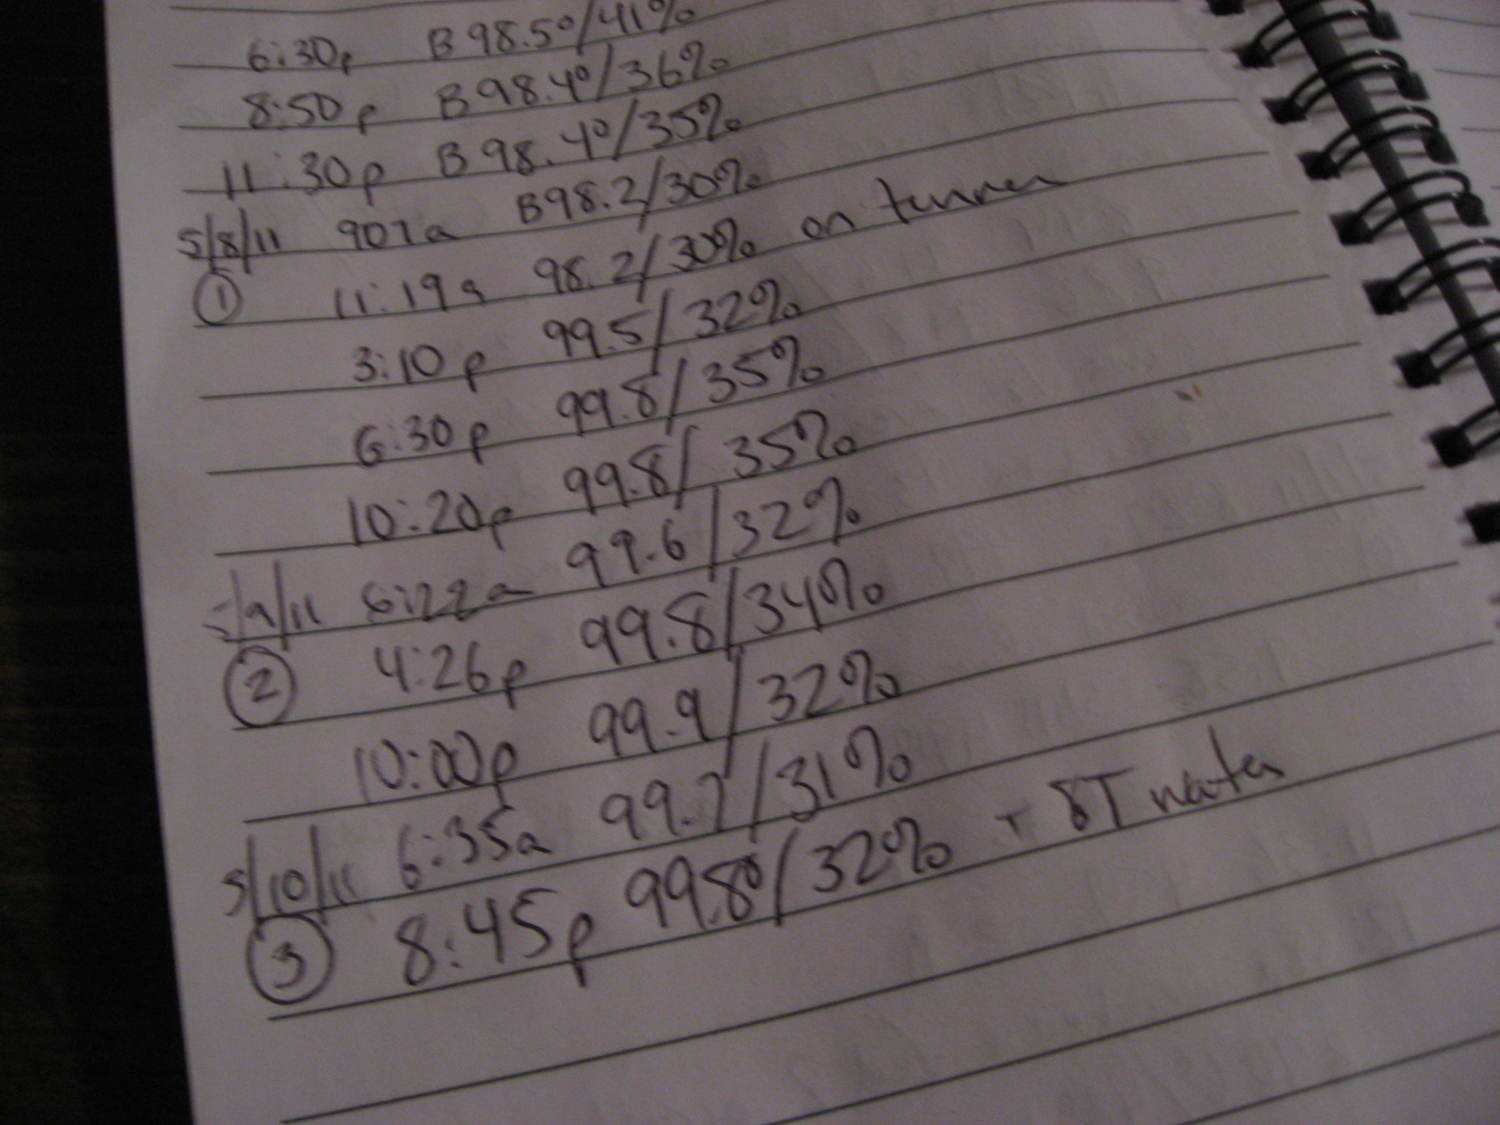 6:30p B 98.5°/41%
8:50p B 98.4°/36%
11:30p B 98.4°/35%
5/8/11 907a B98.2/30%
① 11:19a 98.2/30% on turner
3:10p 99.5/32%
6:30p 99.8/35%
10:20p 99.8/35%
5/9/11 6:22a 99.6/32%
② 4:26p 99.8/34%
10:00p 99.9/32%
5/10/11 6:35a 99.7/31%
③ 8:45p 99.8°/32% + 8T water